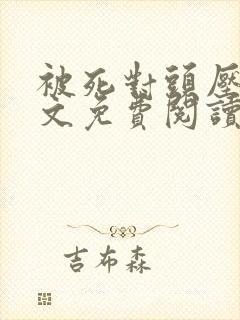 被死對頭壓
文免費閱讀
吉布森